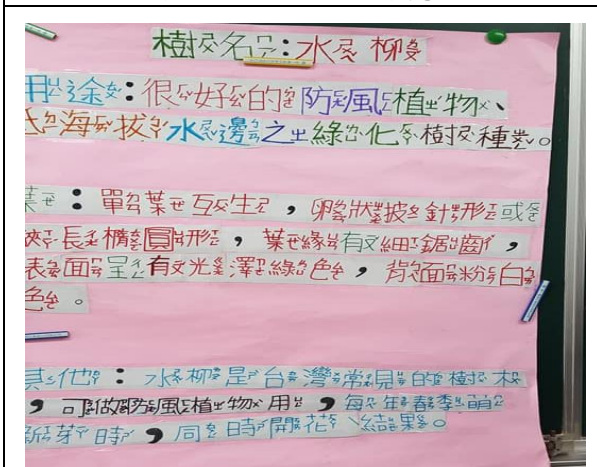 樹名：水柳
用途：很好的防風植物、
低海拔水邊之綠化樹種。
葉：單葉互生，卵狀披針形或
狹長橢圓形，葉緣有細鋸齒，
表面呈有光澤綠色，背面粉白
色。
其他：水柳是台灣常見的樹木
，可做防風植物用，每年春季萌
新芽時，同時開花、結果。